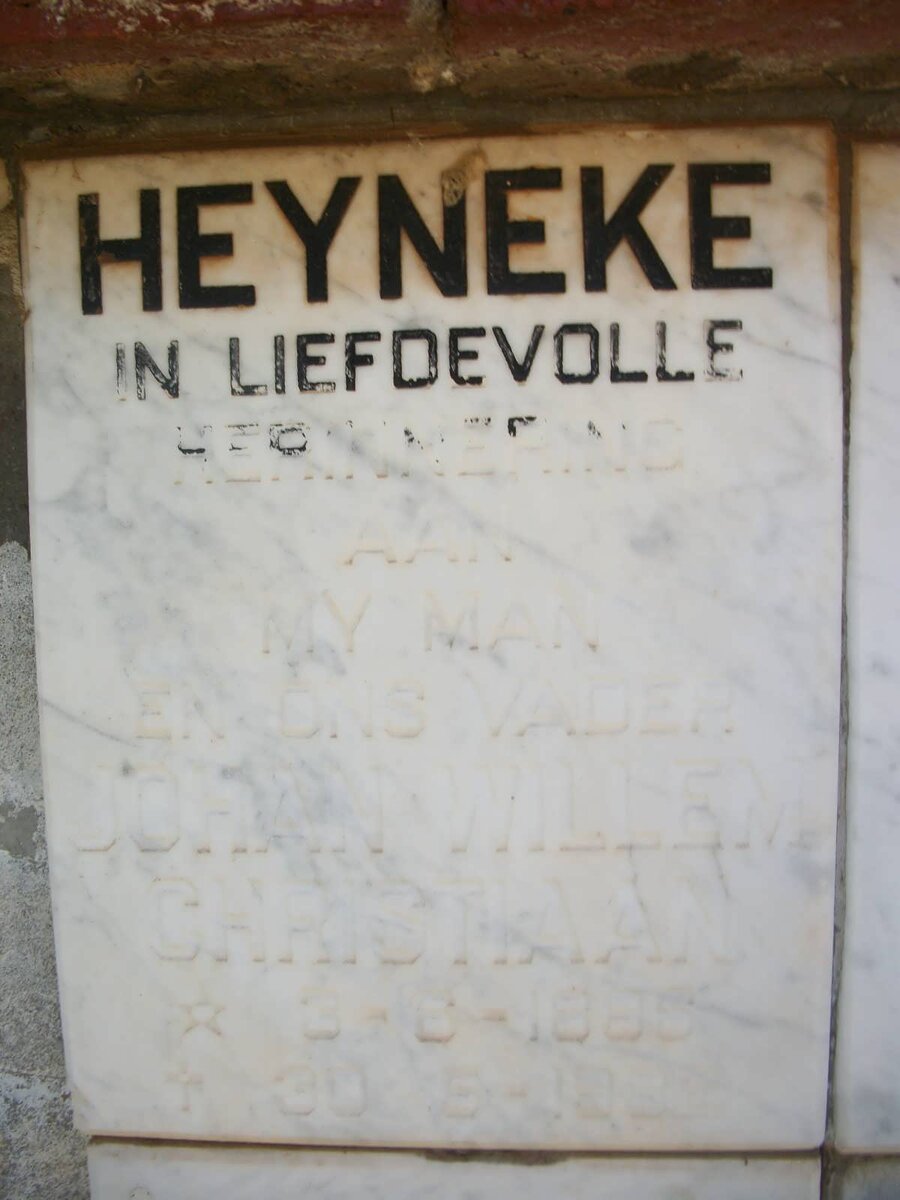 HEYNEKE
IN LIEFDEVOLLE
HERINNERING
AAN
MY MAN
EN ONS VADER
JOHAN WILLEM
CHRISTIAAN